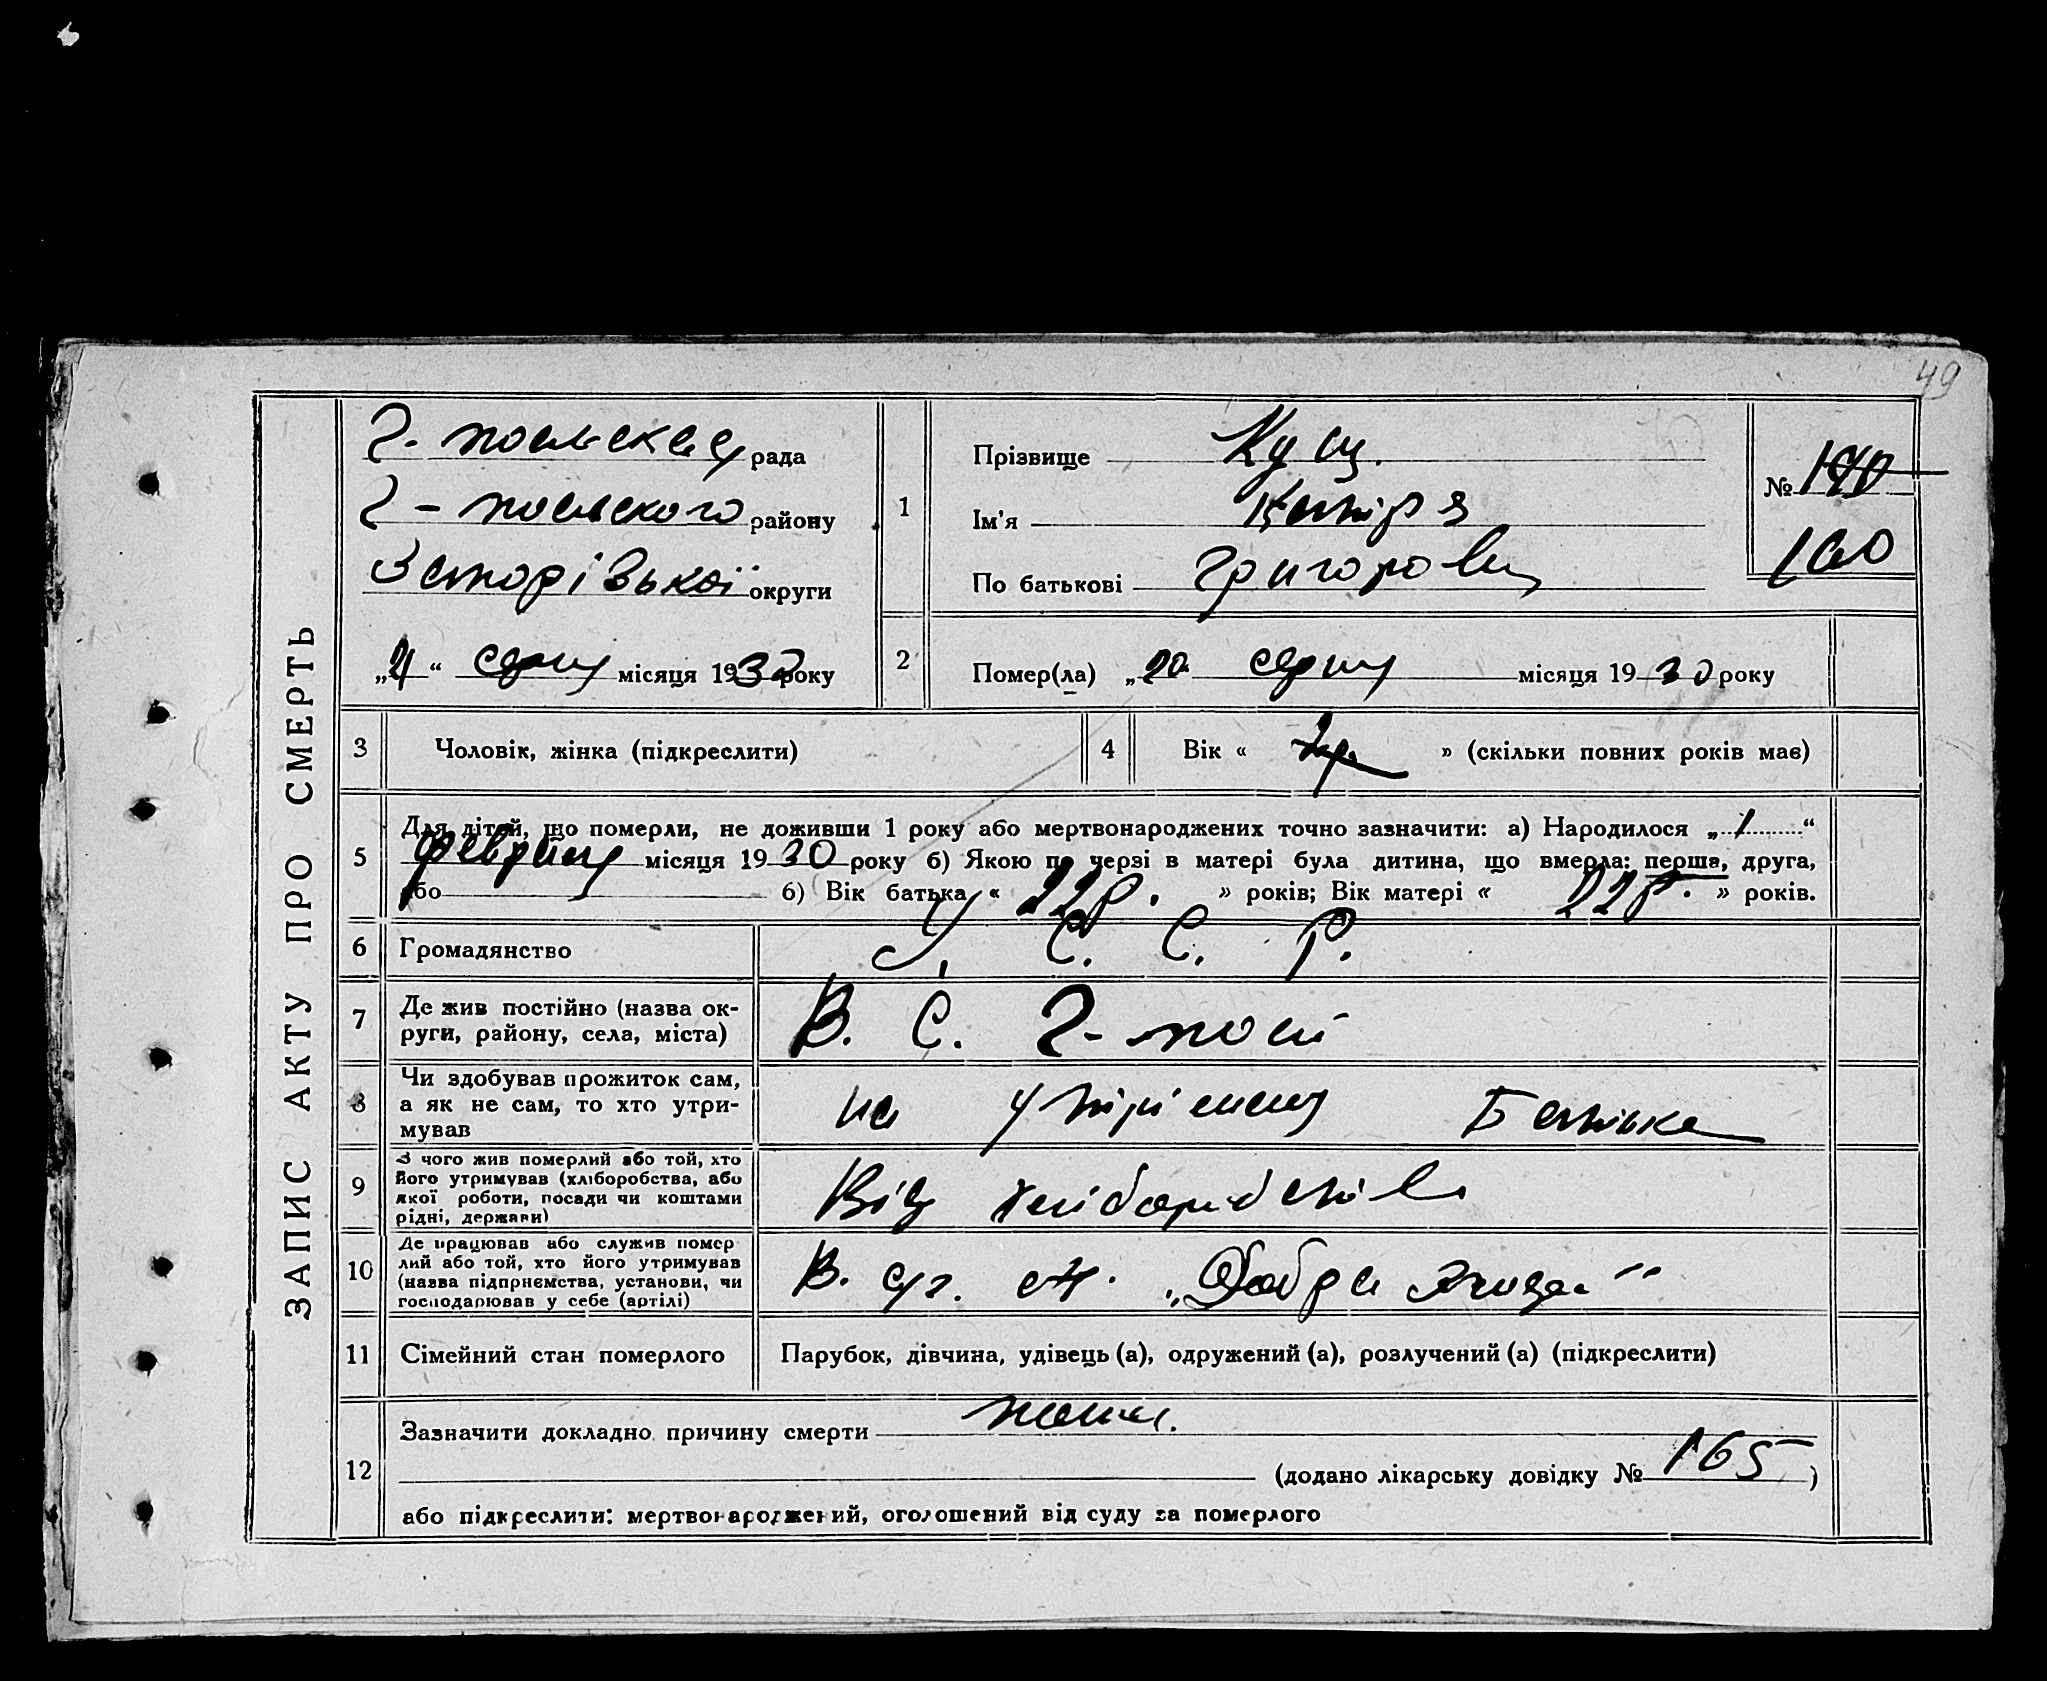 49
ЗАПИС АКТУ ПРО СМЕРТЬ
Г- польська рада
Г - польского району
Запорізької округи
„21“ серпня місяця 1930 року
1
Прізвище Кущ.
Ім'я
По батькові Григорович
№ 140
160
2
Помер(ла) „20 серпня місяця 1930 року
3 Чоловік, жінка (підкреслити)
4 Вік « » (скільки повних років має)
5 Для дітей, що померли, не доживши 1 року або мертвонароджених точно зазначити: а) Народилося „1“
февраля місяця 1930 року б) Якою по черзі в матері була дитина, що вмерла: перша, друга,
або б) Вік батька « 22р. » років; Вік матері « 22р. » років.
6 Громадянство У. С. С. Р.
7 Де жив постійно (назва ок-
руги, району, села, міста) В. С. Г- полі
8 Чи здобував прожиток сам,
а як не сам, то хто утри-
мував на утріманню Батька
9 З чого жив померлий або той, хто
його утримував (хліборобства, або
якої роботи, посади чи коштами
рідні, держави) Від хліборобства
10 Де працював або служив помер
лий або той, хто його утримував
(назва підприємства, установи, чи
господарював у себе (артілі) В. „Добра
11 Сімейний стан померлого Парубок, дівчина, удівець (а), одружений (а), розлучений (а) (підкреслити)
12 Зазначити докладно причину смерти
(додано лікарську довідку № 165)
або підкреслити: мертвонароджений, оголошений від суду за померлого